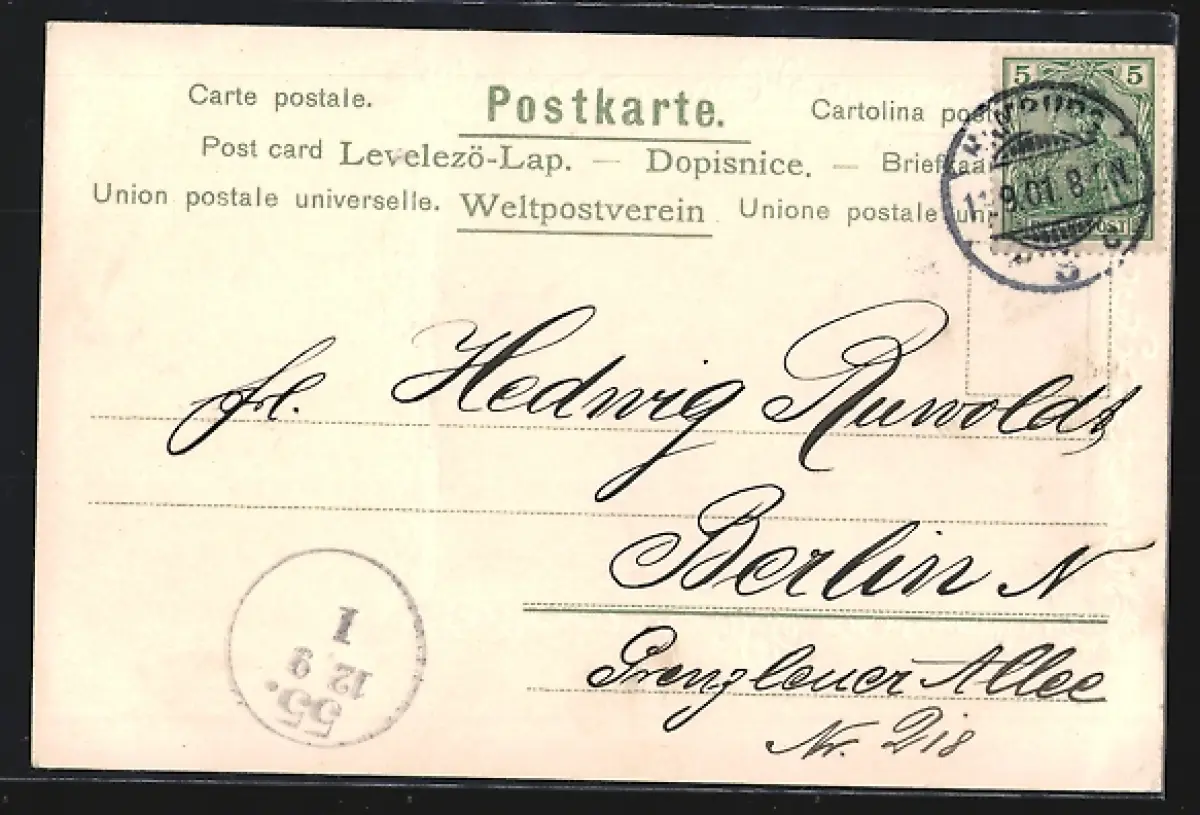 5 5
Carte postale. Postkarte. Cartolina post
Post card Levelezö-Lap. — Dopisnice. — Briefkaa
Union postale universelle. Weltpostverein Unione postale un
HAMBURG
9.01. 8
POST
Frl. Hedwig Ruwoldt
Berlin N
Prenzlauer Allee
Nr. 218
55.
12. 9
1